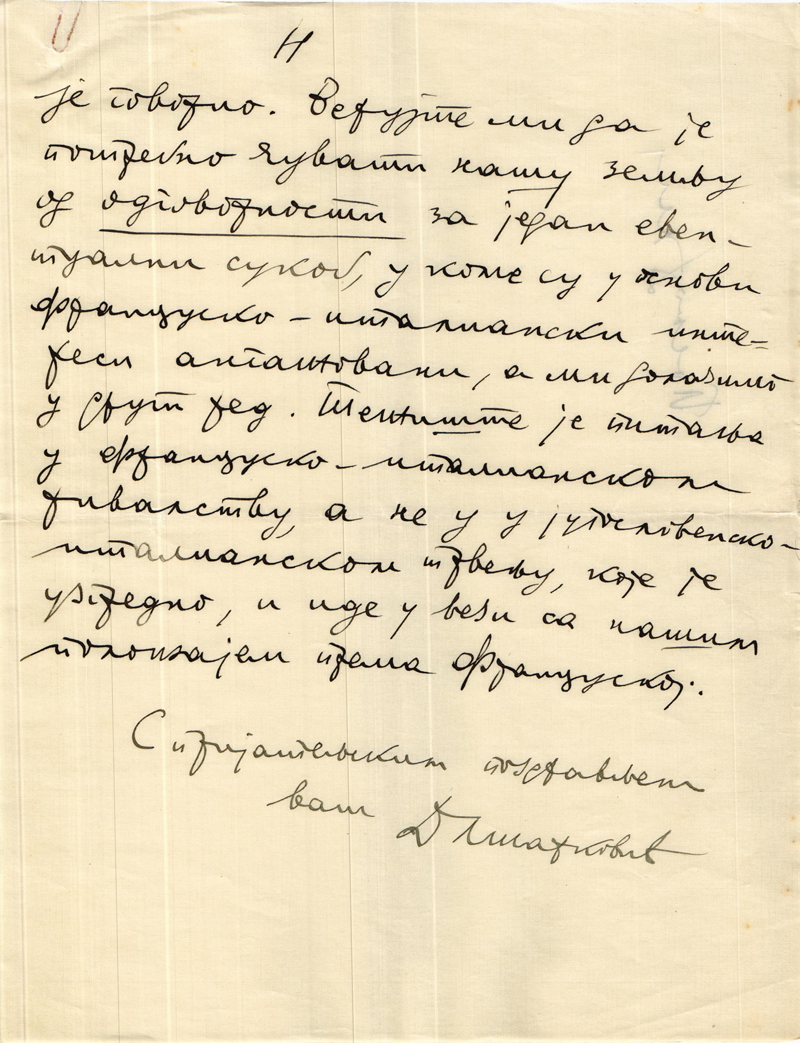 11
је говорио. Верујте ми да је
потребно чувати нашу земљу
од одговорности за један евен-
туални сукоб, у коме су у основи
француско-италиански инте-
реси ангажовани, а ми долазимо
у други ред. Тежиште је питања
у француско-италианском
ривалству, а не у у југословенско-
италианском трвењу, које је
узгредно, и иде у вези са нашим
положајем према Француској.
С пријатељским поздрављем
ваш